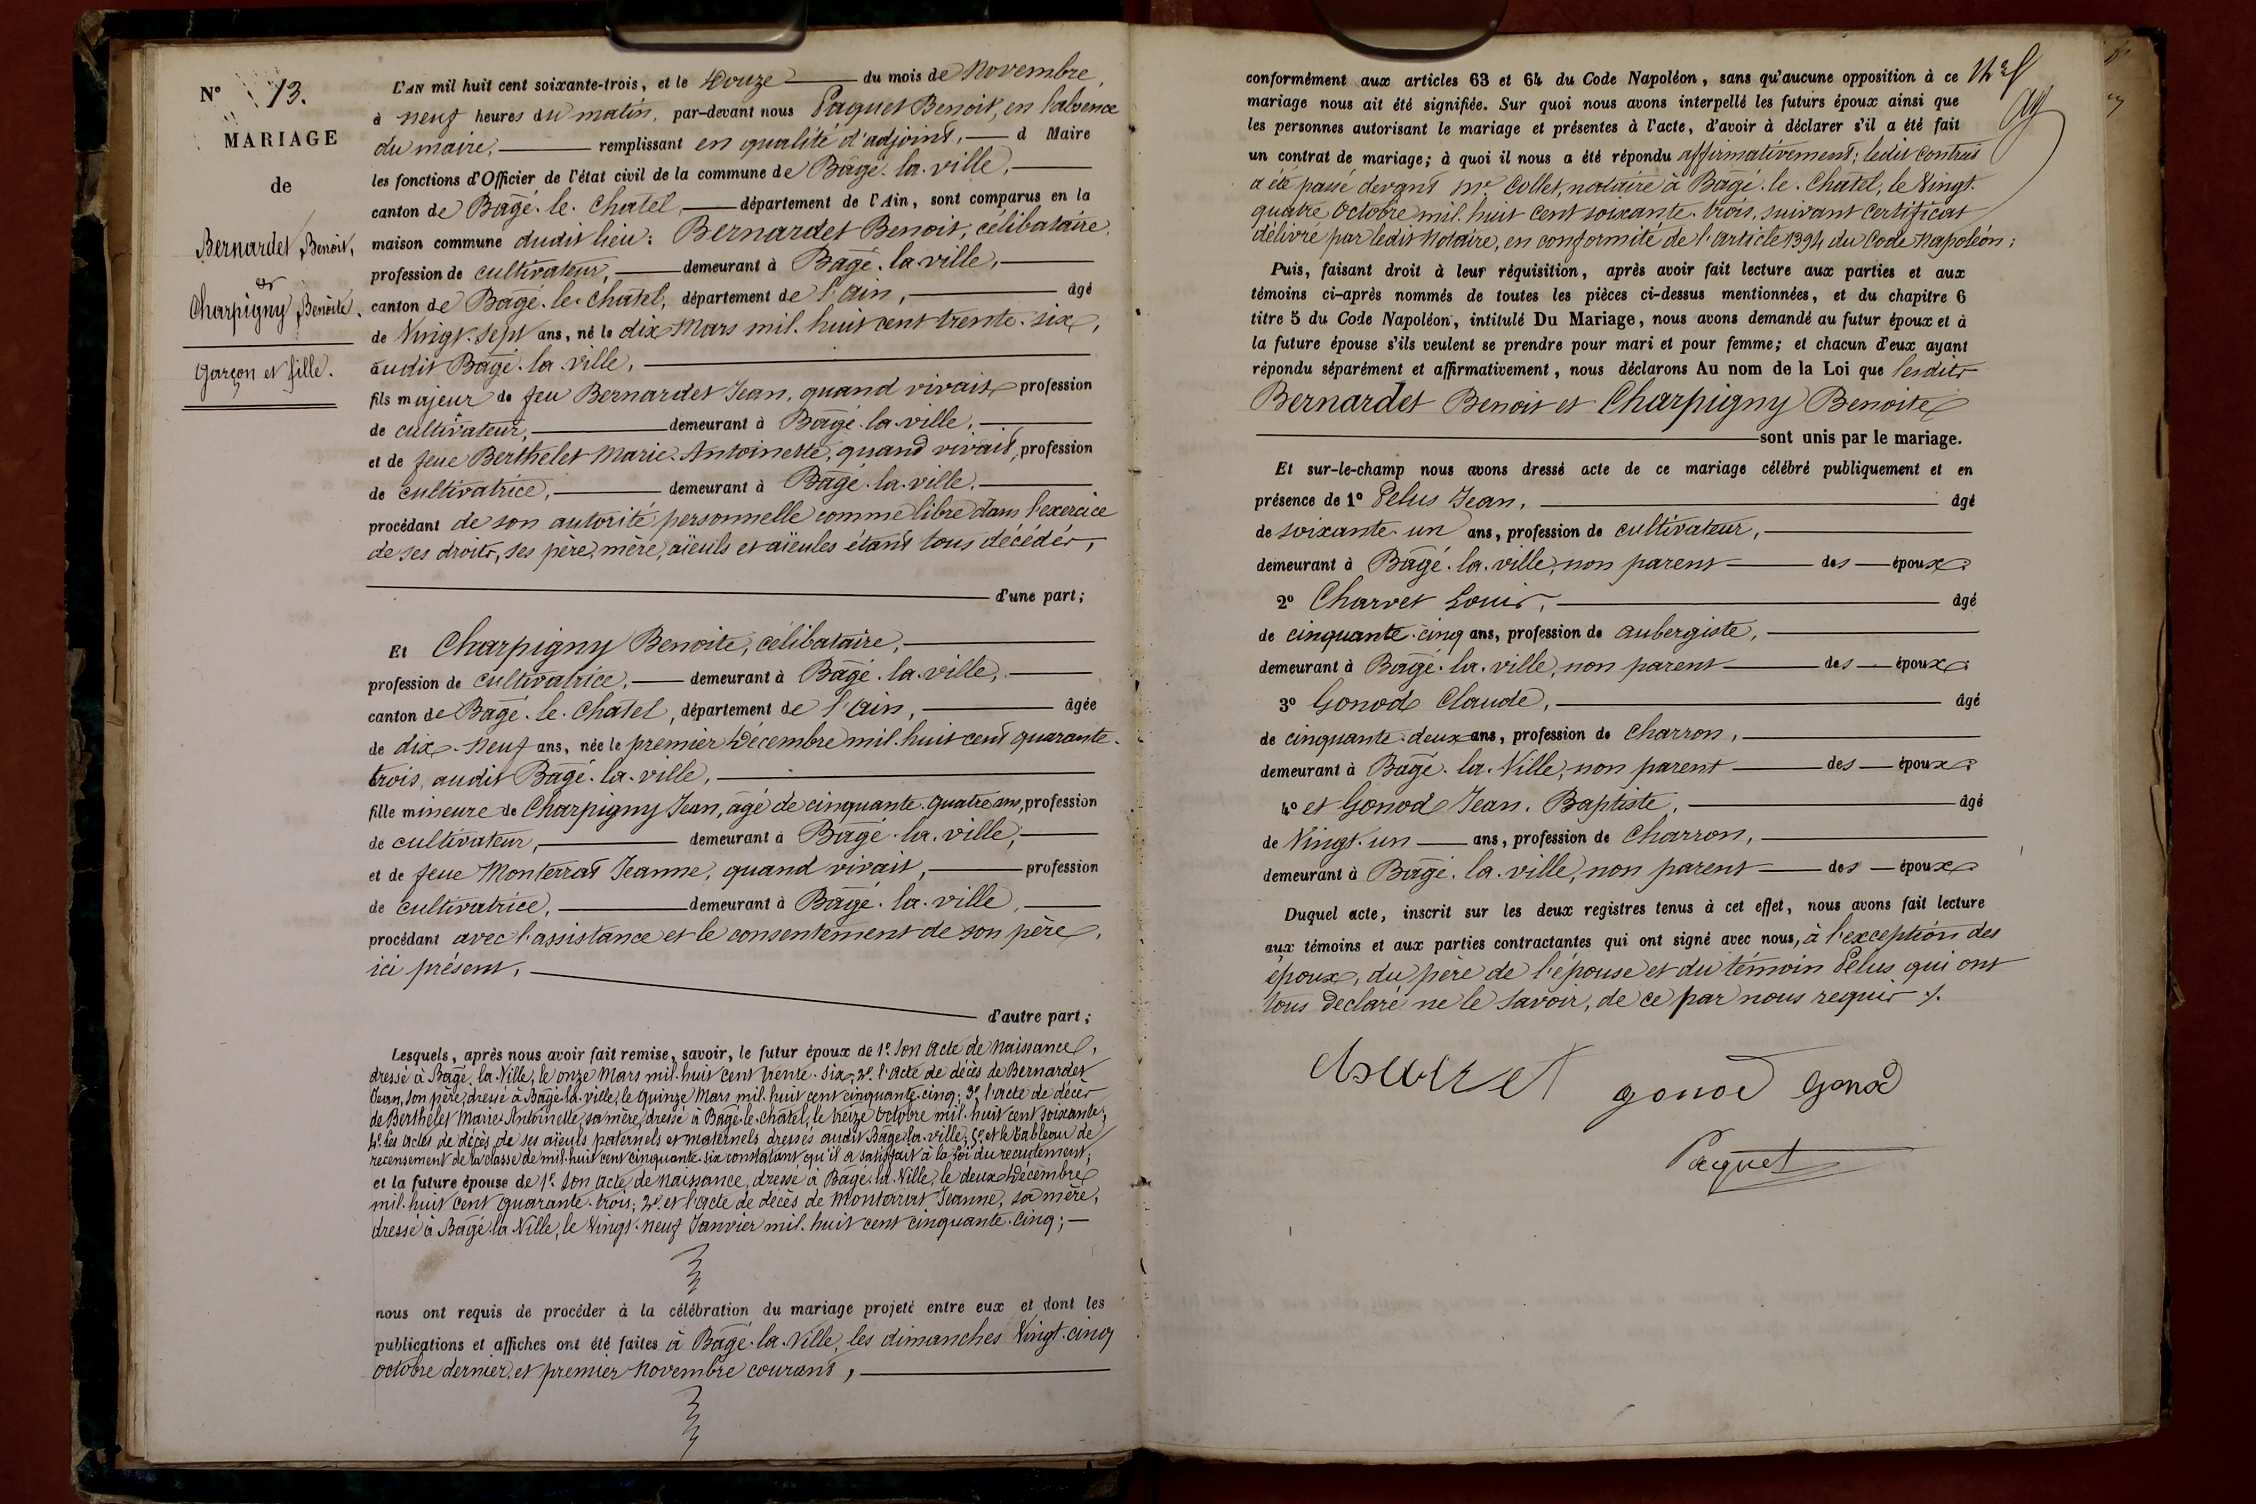 N° 13.
MARIAGE
de
Bernardet Benoit,
et
Charpigny Benoite.
Garçon et fille.
L'AN mil huit cent soixante-trois, et le Douze du mois de Novembre,
à neuf heures du matin, par-devant nous Paquet Benoit, en l'absence
du maire, remplissant en qualité d'adjoint, d Maire
les fonctions d'Officier de l'état civil de la commune de Bâgé-la-ville,
canton de Bâgé-le-Chatel, département de l'Ain, sont comparus en la
maison commune dudit lieu: Bernardet Benoit, célibataire,
profession de cultivateur, demeurant à Bâgé-la-ville,
canton de Bâgé-le-chatel, département de l'Ain, âgé
de Vingt-sept ans, né le dix Mars mil-huit cent trente-six,
audit Bâgé-la-ville,
fils majeur de feu Bernardet Jean, quand vivait, profession
de cultivateur, demeurant à Bâgé-la-ville,
et de feue Berthelet Marie-Antoinette, quand vivait, profession
de cultivatrice, demeurant à Bâgé-la-ville,
procédant de son autorité personnelle comme libre dans l'exercice
de ses droits, ses père, mère, aïeuls et aïeules étant tous décédés,
d'une part;
Et Charpigny Benoite, célibataire,
profession de cultivatrice, demeurant à Bâgé-la-ville,
canton de Bâgé-le-Chatel, département de l'Ain, âgée
de dix-neuf ans, née le premier Décembre mil-huit cent quarante-
trois, audit Bâgé-la-ville,
fille mineure de Charpigny Jean, âgé de cinquante-quatre ans, profession
de cultivateur, demeurant à Bâgé-la-ville,
et de feue Monterrat Jeanne, quand vivait, profession
de cultivatrice, demeurant à Bâgé-la-ville,
procédant avec l'assistance et le consentement de son père,
ici présent,
d'autre part;
Lesquels, après nous avoir fait remise, savoir, le futur époux de 1° Son Acte de Naissance,
dressé à Bâgé-la-Ville, le onze Mars mil-huit cent trente-six; 2° l'acte de décès de Bernardet
Jean, son père, dressé à Bâgé-la-ville, le Quinze Mars mil-huit cent cinquante-cinq; 3° l'acte de décès
de Berthelet Marie-Antoinette, sa mère, dressé à Bâgé-le-chatel, le treize Octobre mil-huit cent soixante;
4° les actes de décès de ses aïeuls paternels et maternels dressés audit Bâgé-la-ville; 5° et le tableau de
recensement de la classe de mil-huit cent cinquante-six constatant qu'il a satisfait à la loi du recrutement;
et la future épouse de 1° Son acte de naissance, dressé à Bâgé-la-Ville, le deux Décembre
mil-huit cent quarante-trois; 2° et l'acte de décès de Monterrat Jeanne, sa mère,
dressé à Bâgé-la-Ville, le Vingt-neuf Janvier mil-huit cent cinquante-cinq;
nous ont requis de procéder à la célébration du mariage projeté entre eux et dont les
publications et affiches ont été faites à Bâgé-la-Ville, les dimanches Vingt-cinq
octobre dernier, et premier Novembre courant,
conformément aux articles 63 et 64 du Code Napoléon, sans qu'aucune opposition à ce
mariage nous ait été signifiée. Sur quoi nous avons interpellé les futurs époux ainsi que
les personnes autorisant le mariage et présentes à l'acte, d'avoir à déclarer s'il a été fait
un contrat de mariage; à quoi il nous a été répondu affirmativement; ledit contrat
a été passé devant Mr Collet, notaire à Bâgé-le-Chatel, le Vingt-
quatre Octobre mil-huit cent soixante-trois, suivant certificat
délivré par ledit Notaire, en conformité de l'article 1394 du Code Napoléon;
Puis, faisant droit à leur réquisition, après avoir fait lecture aux parties et aux
témoins ci-après nommés de toutes les pièces ci-dessus mentionnées, et du chapitre 6
titre 5 du Code Napoléon, intitulé Du Mariage, nous avons demandé au futur époux et à
la future épouse s'ils veulent se prendre pour mari et pour femme; et chacun d'eux ayant
répondu séparément et affirmativement, nous déclarons Au nom de la Loi que lesdits
Bernardet Benoit et Charpigny Benoite
sont unis par le mariage.
Et sur-le-champ nous avons dressé acte de ce mariage célébré publiquement et en
présence de 1° Pelus Jean, âgé
de soixante-un ans, profession de cultivateur,
demeurant à Bâgé-la-ville, non parent des époux;
2° Charvet Louis, âgé
de cinquante-cinq ans, profession de aubergiste,
demeurant à Bâgé-la-ville, non parent des époux;
3° Gonod Claude, âgé
de cinquante-deux ans, profession de Charron,
demeurant à Bâgé-la-Ville, non parent des époux;
4° et Gonod Jean-Baptiste, âgé
de Vingt-un ans, profession de Charron,
demeurant à Bâgé-la-ville, non parent des époux
Duquel acte, inscrit sur les deux registres tenus à cet effet, nous avons fait lecture
aux témoins et aux parties contractantes qui ont signé avec nous, à l'exception des
époux, du père de l'épouse et du témoin Pelus qui ont
tous déclaré ne le savoir, de ce par nous requis ./.
Charvet gonod Gonod
Paquet